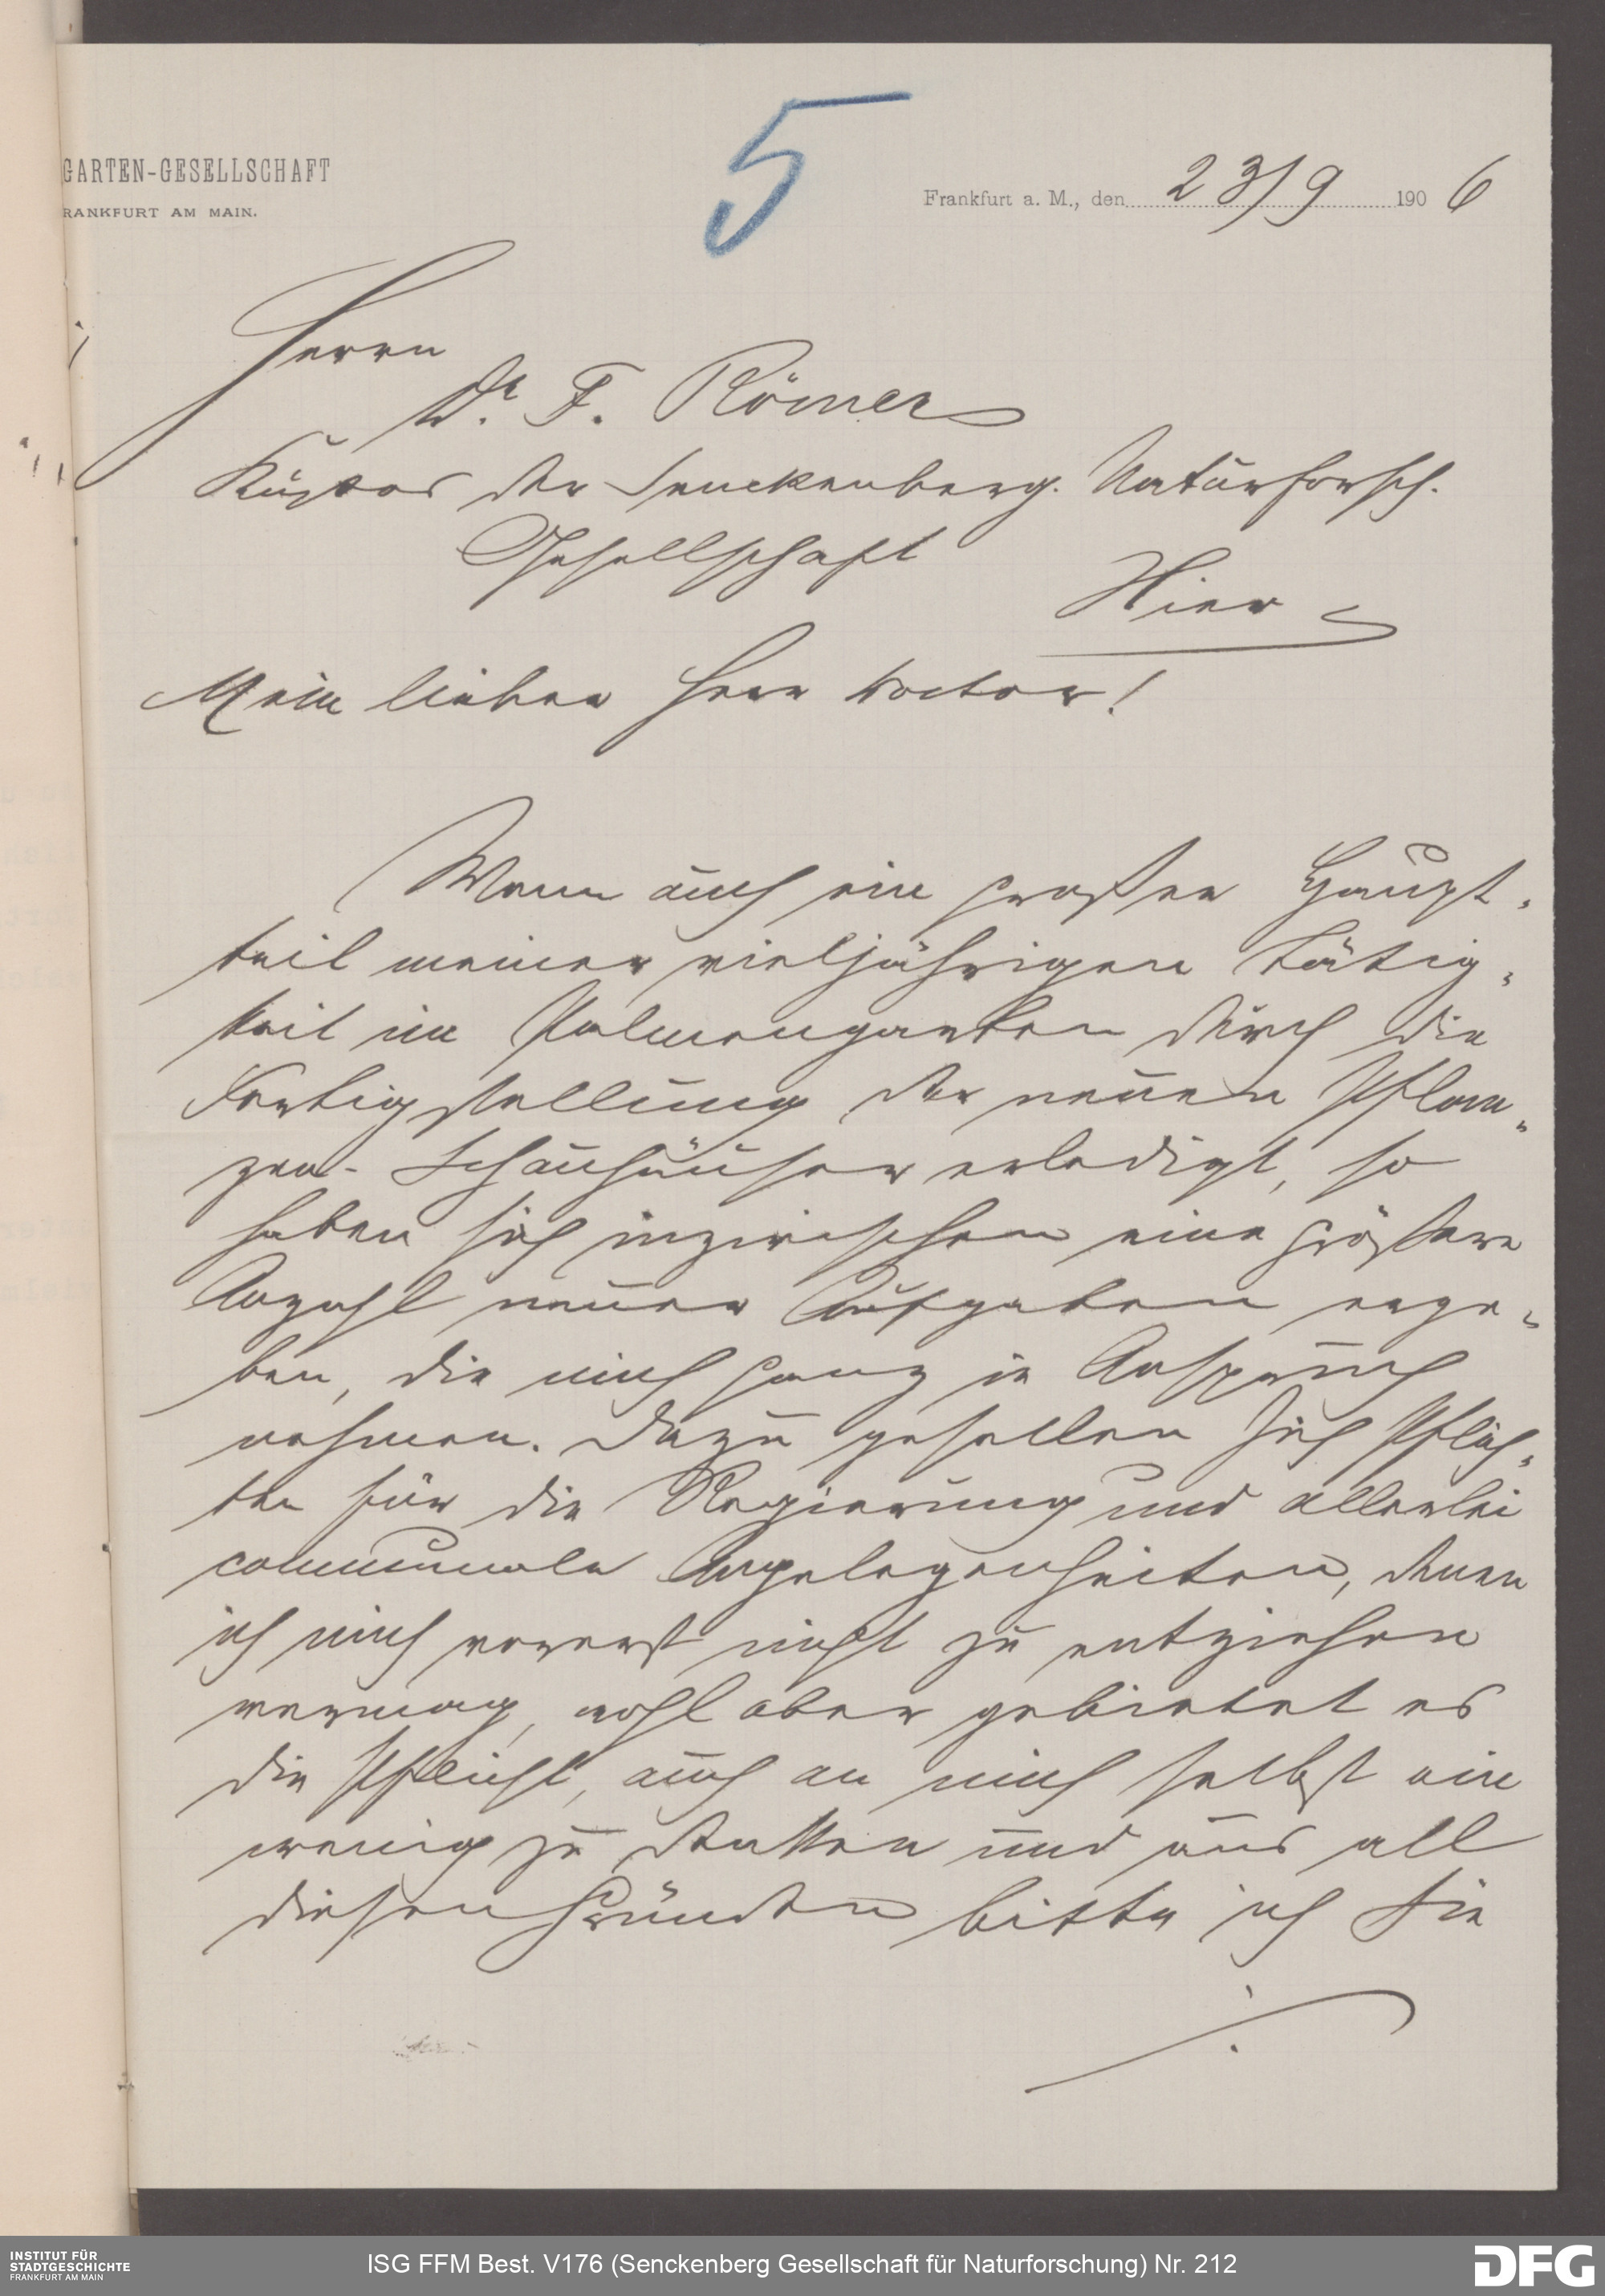 5
GARTEN-GESELLSCHAFT
RANKFURT AM MAIN.
Frankfurt a. M., den 23/9 1906
Herrn
Dr. F. Römer
Kustos der Senckenberg. Naturforsch.
Gesellschaft
Hier
Mein lieber Herr Doctor!
Wenn auch ein großer Haupt-
teil meiner vieljährigen Tätig-
keit im Palmengarten durch die
Fertigstellung der neuen Pflan-
zen-Schauhäuser erledigt, so
haben sich inzwischen eine größere
Anzahl neuer Aufgaben erge-
ben, die mich ganz in Anspruch
nehmen. Dazu gesellen sich Pflich-
ten für die Regierung und allerlei
communale Angelegenheiten, denen
ich mich vorerst nicht zu entziehen
vermag, wohl aber gebietet es
die Pflicht, auch an mich selbst ein
wenig zu denken und aus all
diesen Gründen bitte ich Sie
./.
INSTITUT FÜR
STADTGESCHICHTE
FRANKFURT AM MAIN
ISG FFM Best. V176 (Senckenberg Gesellschaft für Naturforschung) Nr. 212
DFG